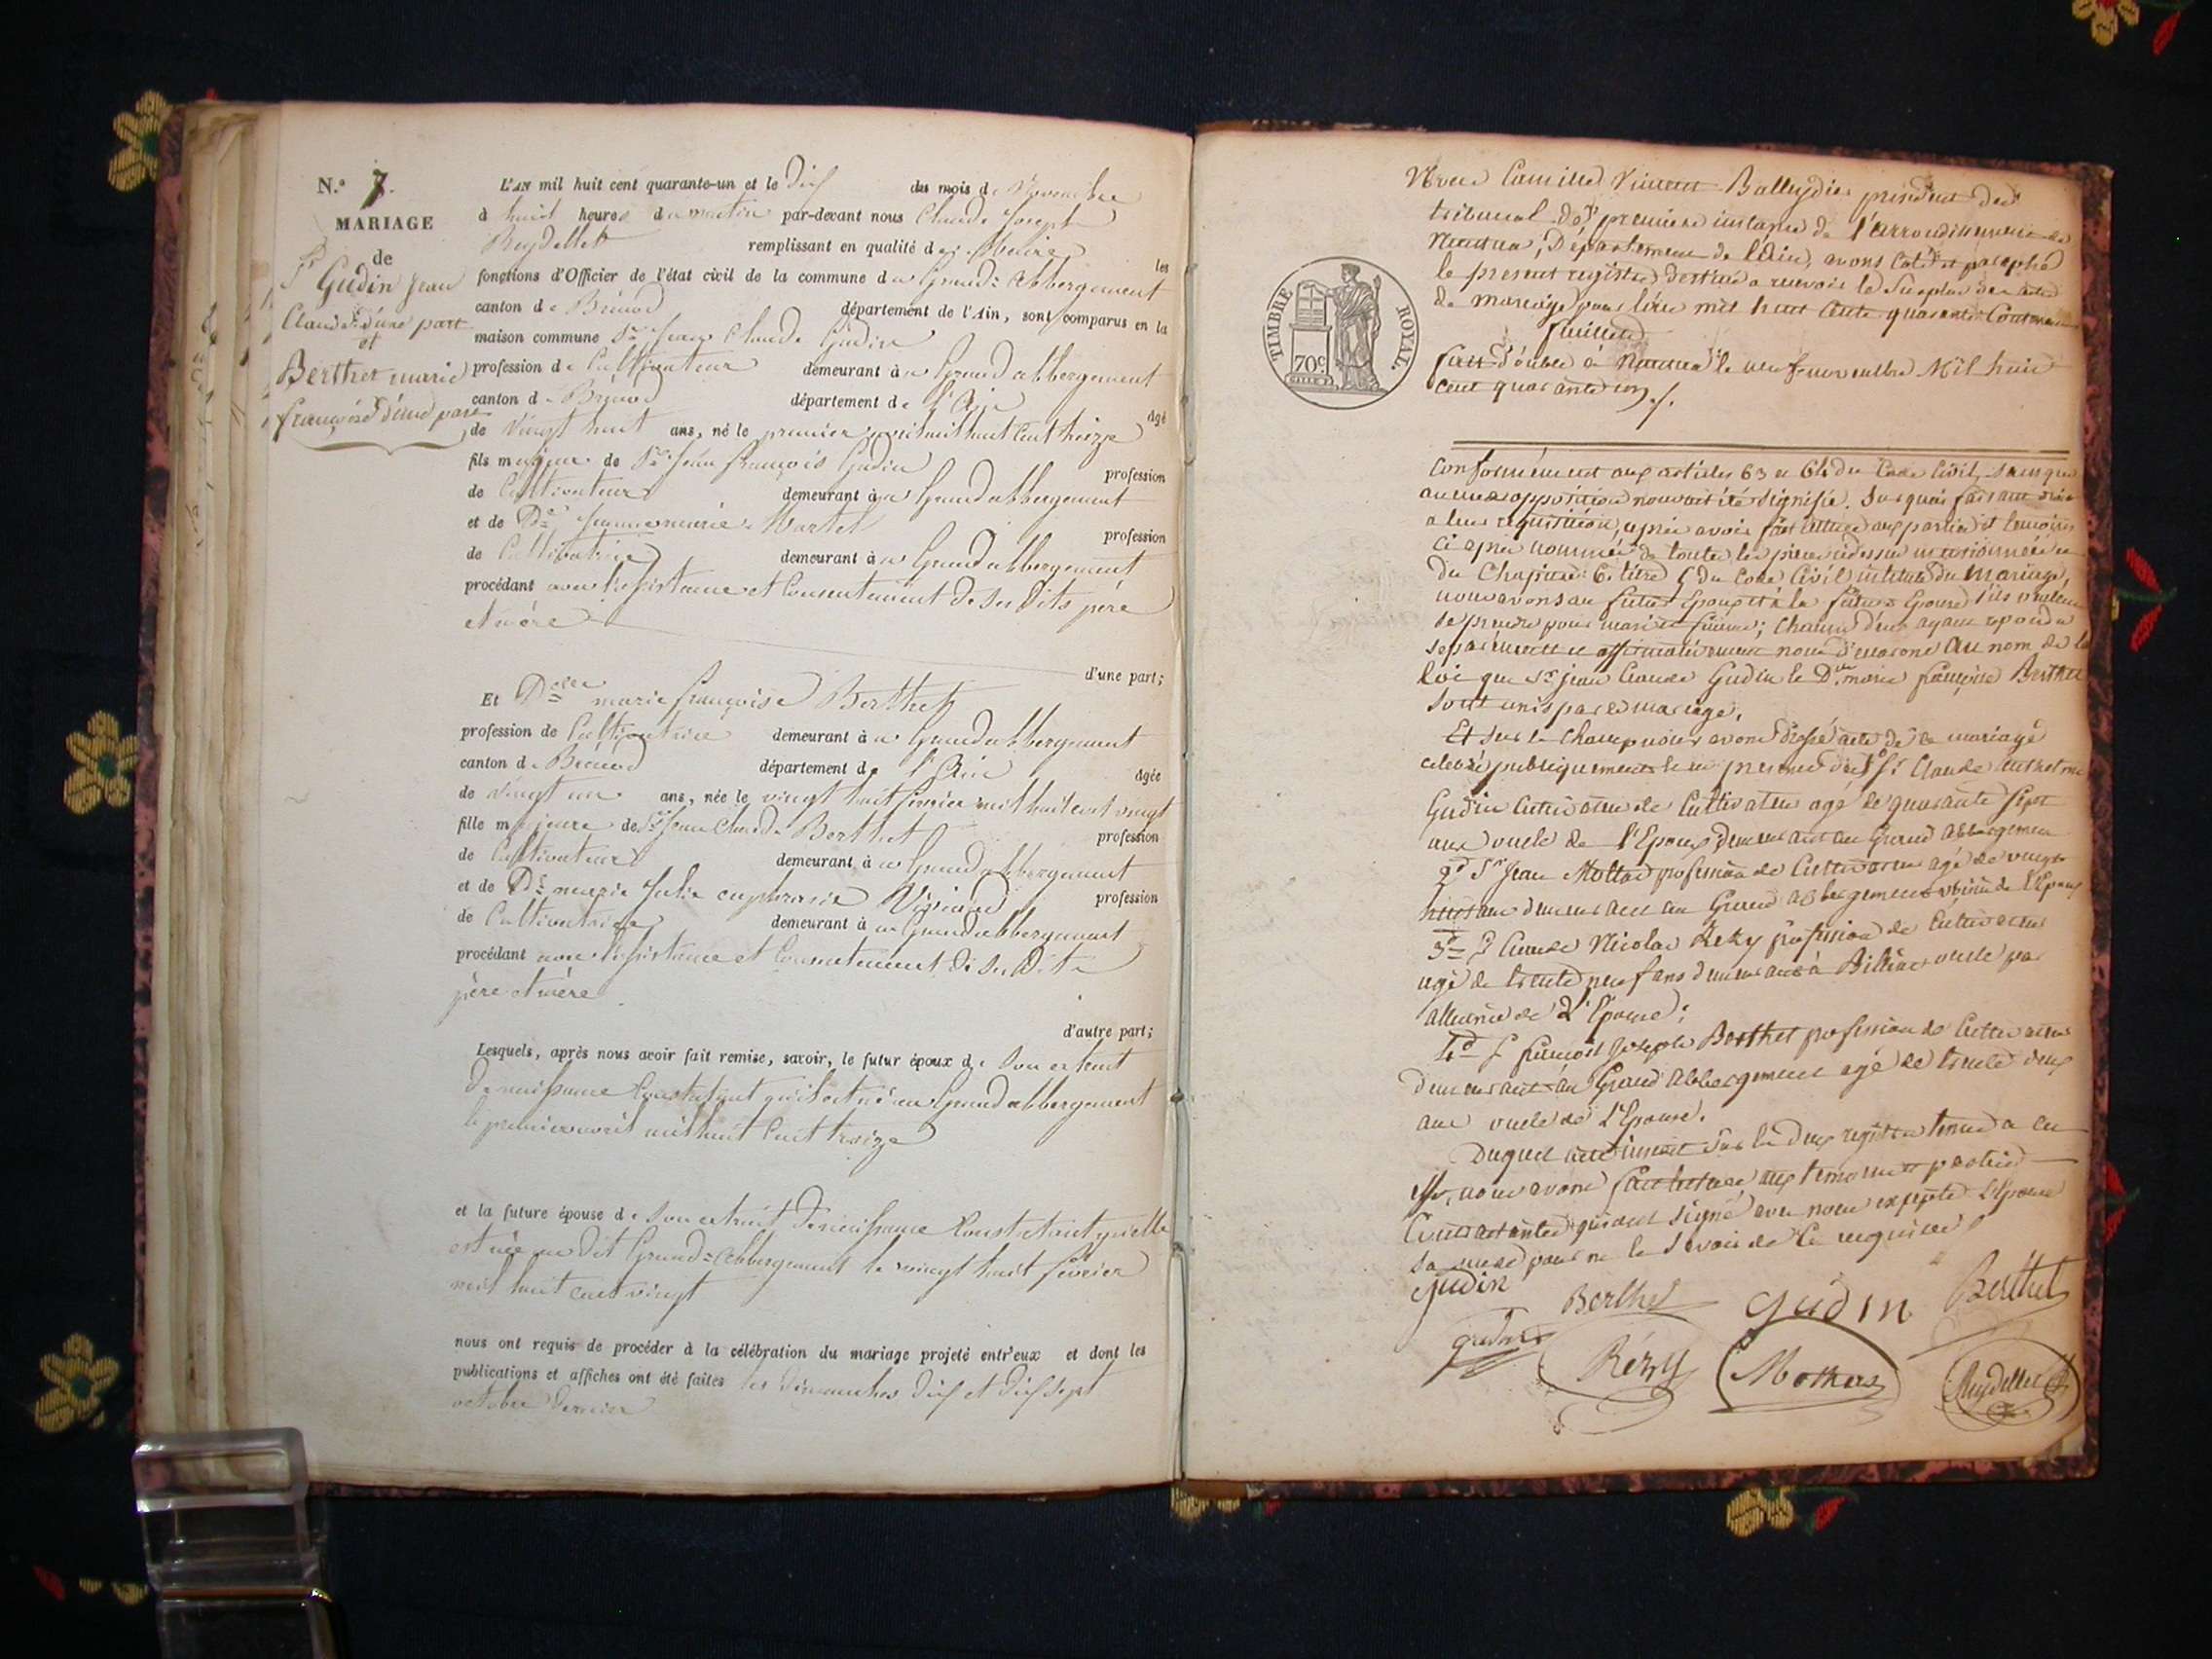 N.° 7.
MARIAGE
de
Sr Gudin Jean
Claude d'une part
et
Berthet marie
françoise d'autre part
L'AN mil huit cent quarante-un et le Dix du mois de Novembre
à huit heures du matin par-devant nous Claude Joseph
Reydellet remplissant en qualité de Maire les
fonctions d'Officier de l'état civil de la commune du Grand-Abbergement
canton de Brénod département de l'Ain, sont comparus en la
maison commune Sr Jean Claude Gudin
profession de Cultivateur demeurant à au Grand abbergement
canton de Brénod département de l'Ain Agé
de Vingt huit ans, né le premier avril mil huit cent treize
fils majeur de Sr Jean françois Gudin profession
de Cultivateur demeurant à au Grand abbergement
et de De Jeanne marie Martel profession
de Cultivatrice demeurant à au Grand abbergement
procédant avec l'assistance et Consentement de ses dits père
et mère
d'une part;
Et Delle marie françoise Berthet
profession de Cultivatrice demeurant à au Grand abbergement
canton de Brénod département de l'Ain Agée
de vingt un ans, née le vingt huit février mil huit cent vingt
fille majeure de Sr Jean Claude Berthet profession
de Cultivateur demeurant à au Grand abbergement
et de De marie Julie euphrasie profession
de Cultivatrice demeurant à au Grand abbergement
procédant avec l'assistance et Consentement de ses Dits
père et mère
d'autre part;
Lesquels, après nous avoir fait remise, savoir, le futur époux de Son extrait
De naissance Constatant qu'il est né au Grand abbergement
le premier avril mil huit Cent treize
et la future épouse de Son extrait De naissance Constatant qu'elle
est née au dit Grand=Abbergement le vingt huit février
mil huit cent vingt
nous ont requis de procéder à la célébration du mariage projeté entr'eux et dont les
publications et affiches ont été faites les dimanches dix et dix sept
octobre dernier
Nous Camille Vincent Balleydier président du
tribunal de première instance de l'arrondissement de
Nantua, Département de l'Ain, avons Coté et paraphé
le présent registre destiné a recevoir le Suplement des actes
de mariage pour l'an mil huit Cent quarante Contenant
feuillet
fait double à Nantua le neuf novembre Mil huit
cent quarante un ./.
TIMBRE ROYAL.
70c
Conformément aux articles 63 et 64 du Code Civil, Sans que
aucune opposition nous ait été Signifiée. Sur quoi faisant droit
a leur réquisition, après avoir fait lecture aux parties et temoins
ci après nommés de toutes les pieces cidessus mentionnées et
du Chapitre 6. titre 5 du Code Civil intitulé du Mariage,
nous avons au futur Epoux et à la future Epouse s'ils veulent
se prendre pour mari et femme; chacun d'eux ayant repondu
separément et affirmativement nous declarons au nom de la
loi que Sr jean Claude Gudin le Dlle marie françoise Berthet
sont unis par le mariage.
Et sur le champ nous avons dressé acte de ce mariage
celebré publiquement en presence des Sr Claude
Gudin profession de Cultivateur agé de quarante Sept
ans oncle de l'Epoux demeurant au Grand Abbergement
2d Sr Jean profession de Cultivateur agé de vingt
huit ans demeurant au Grand abbergement voisin de l'Epoux
3me S Claude Nicolas Rezy profession de Cultivateur
agé de trente neuf ans demeurant à oncle par
alliance de l'Epouse;
4d S françois Joseph Berthet profession de Cultivateur
demeurant au Grand Abbergement agé de trente deux
ans oncle de l'Epouse.
Duquel acte inscrit Sur les deux registres tenus a cet
effet, nous avons fait lecture aux temoins et parties
Contractantes qui ont signé avec nous excepté l'Epouse
sa mere pour ne le Savoir de ce requises
Gudin Berthet Gudin Berthet
gudin Rézy Reydellet